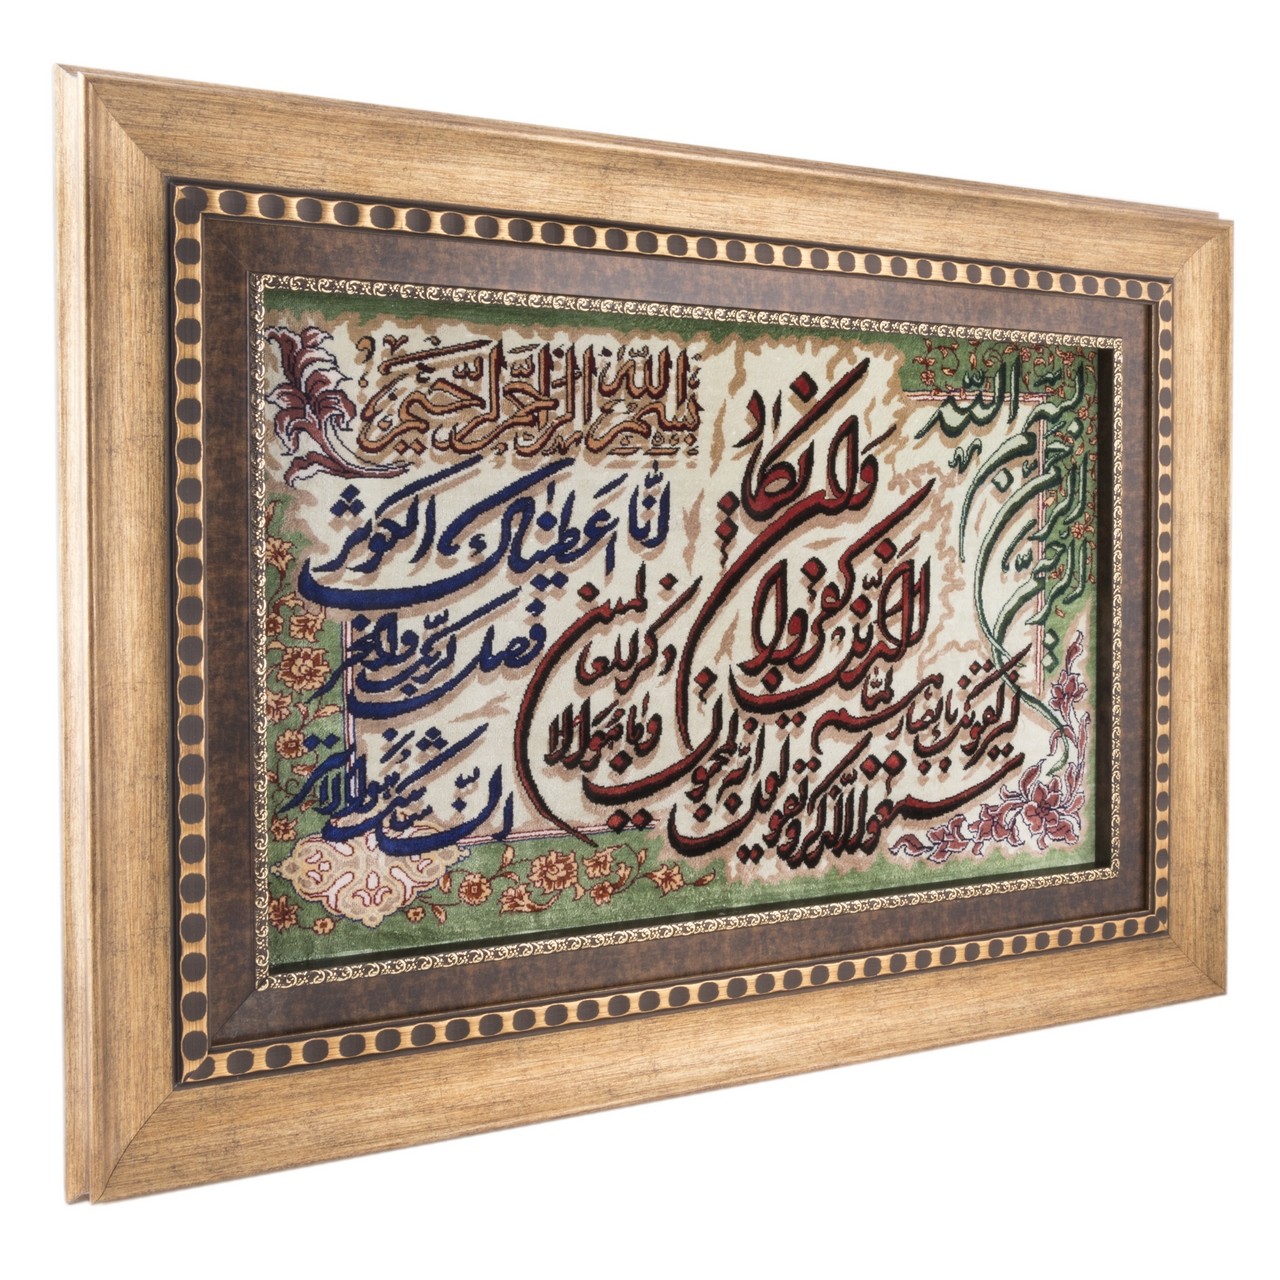 بسم الله
الرحمن
الرحیم
وان یکاد
الذین کفروا
لیزلقونک بابصارهم لما
سمعوا الذکر و یقولون
انه لمجنون
وما هو الا
ذکر للعالمین
بسم الله الرحمن الرحیم
انا اعطیناک الکوثر
فصل لربک وانحر
ان شانئک هو الابتر